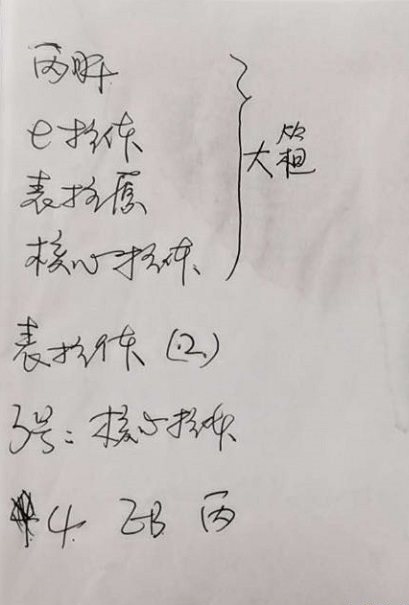 丙肝
e抗体
大箱
表抗原
核心抗体
表抗体 (2)
3号: 核心抗体
4. 丙